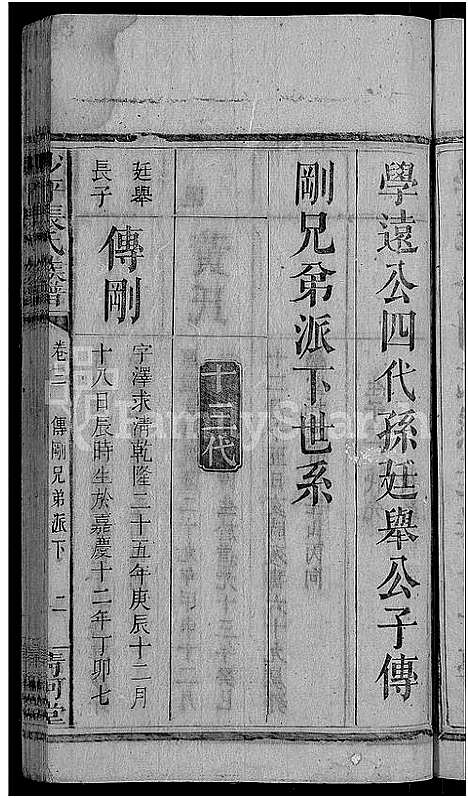 學遠公四代孫廷舉公子傳
剛兄弟派下世系
十三代
廷舉
長子
傳剛
字澤求清乾隆二十五年庚辰十二月
十八日辰時生於嘉慶十二年丁卯七
張氏族譜
卷二
傳剛兄弟派下
二
清河堂